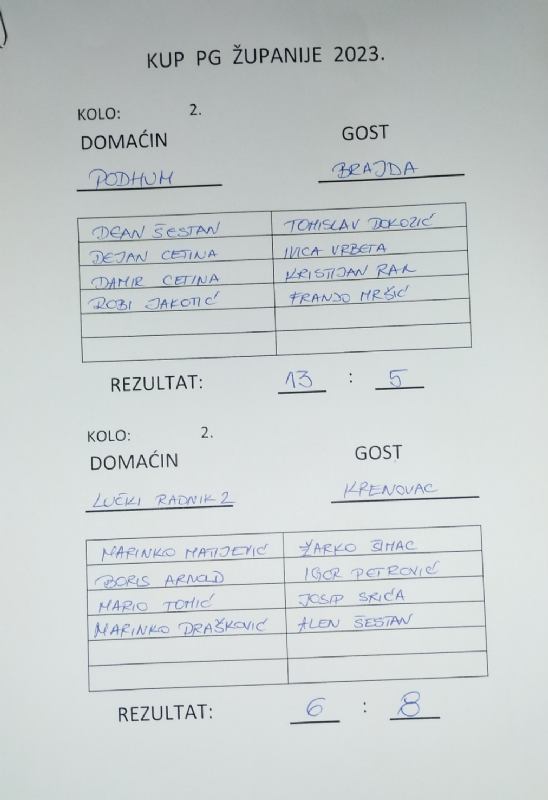 KUP PG ŽUPANIJE 2023.
KOLO: 2.
DOMAĆIN GOST
PODHUM BRAJDA
DEAN ŠESTAN TOMISLAV ĐOKOZIĆ
DEJAN CETINA IVICA VRBETA
DAMIR CETINA KRISTIJAN RAK
ROBI JAKOTIĆ FRANJO MRŠIĆ
REZULTAT: 13 : 5
KOLO: 2.
DOMAĆIN GOST
LUČKI RADNIK 2 KRENOVAC
MARINKO MATIJEVIĆ ŽARKO ŠIMAC
BORIS ARNOLD IGOR PETROVIĆ
MARIO TOMIĆ JOSIP SRIĆA
MARINKO DRAŠKOVIĆ ALEN ŠESTAN
REZULTAT: 6 : 8